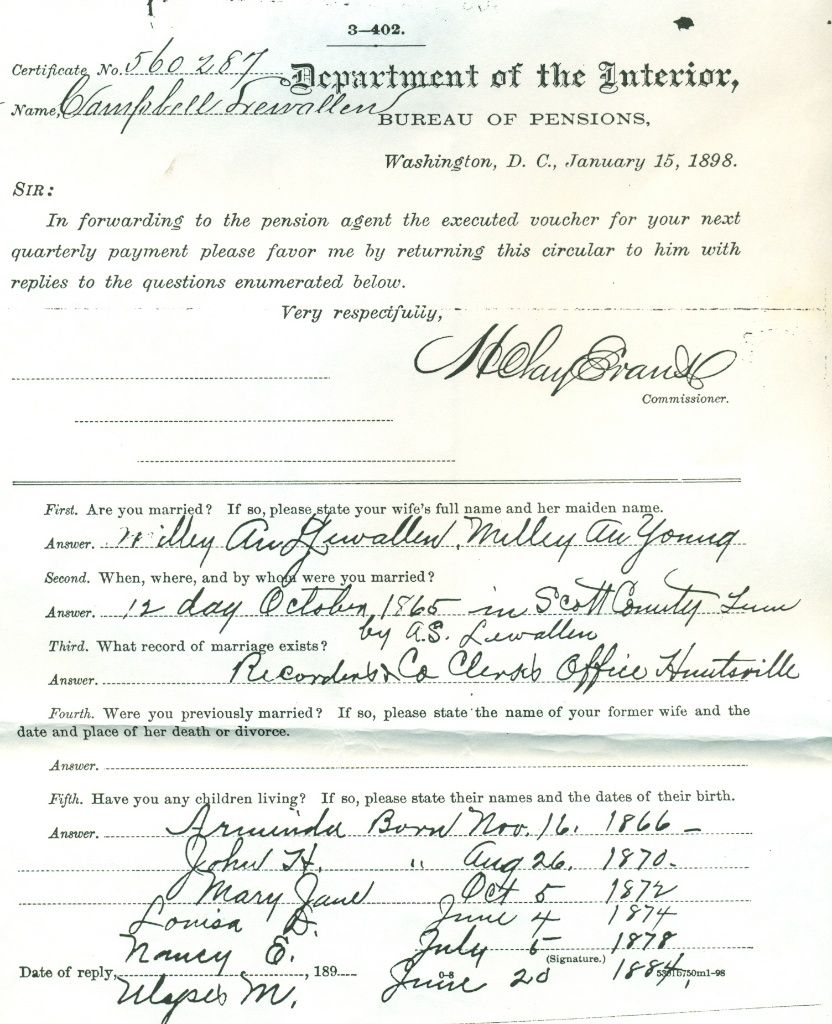 3—402.
Certificate No. 560287
Department of the Interior,
Name, Campbell Lewallen
BUREAU OF PENSIONS,
Washington, D. C., January 15, 1898.
SIR:
In forwarding to the pension agent the executed voucher for your next
quarterly payment please favor me by returning this circular to him with
replies to the questions enumerated below.
Very respectfully,
H Clay Evans
Commissioner.
First. Are you married? If so, please state your wife's full name and her maiden name.
Answer. Milley An Lewallen, Milley An Young
Second. When, where, and by whom were you married?
Answer. 12 day October, 1865 in Scott County Tenn
by A.S. Lewallen
Third. What record of marriage exists?
Answer. Recorders & Co Clerks Office Huntsville
Fourth. Were you previously married? If so, please state the name of your former wife and the
date and place of her death or divorce.
Answer.
Fifth. Have you any children living? If so, please state their names and the dates of their birth.
Answer. Arminda Born Nov. 16. 1866 —
John H. " Aug 26. 1870.
Mary Jane Oct 5 1872
Louisa D. June 4 1874
Nancy E. July 5 1878
(Signature.)
Date of reply, , 189
Ulyses M. June 20 1884,
0-8 5301b750m1-98